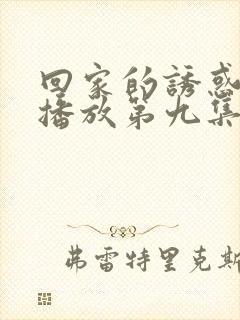 回家的誘惑
播放第九集
弗雷特里克斯